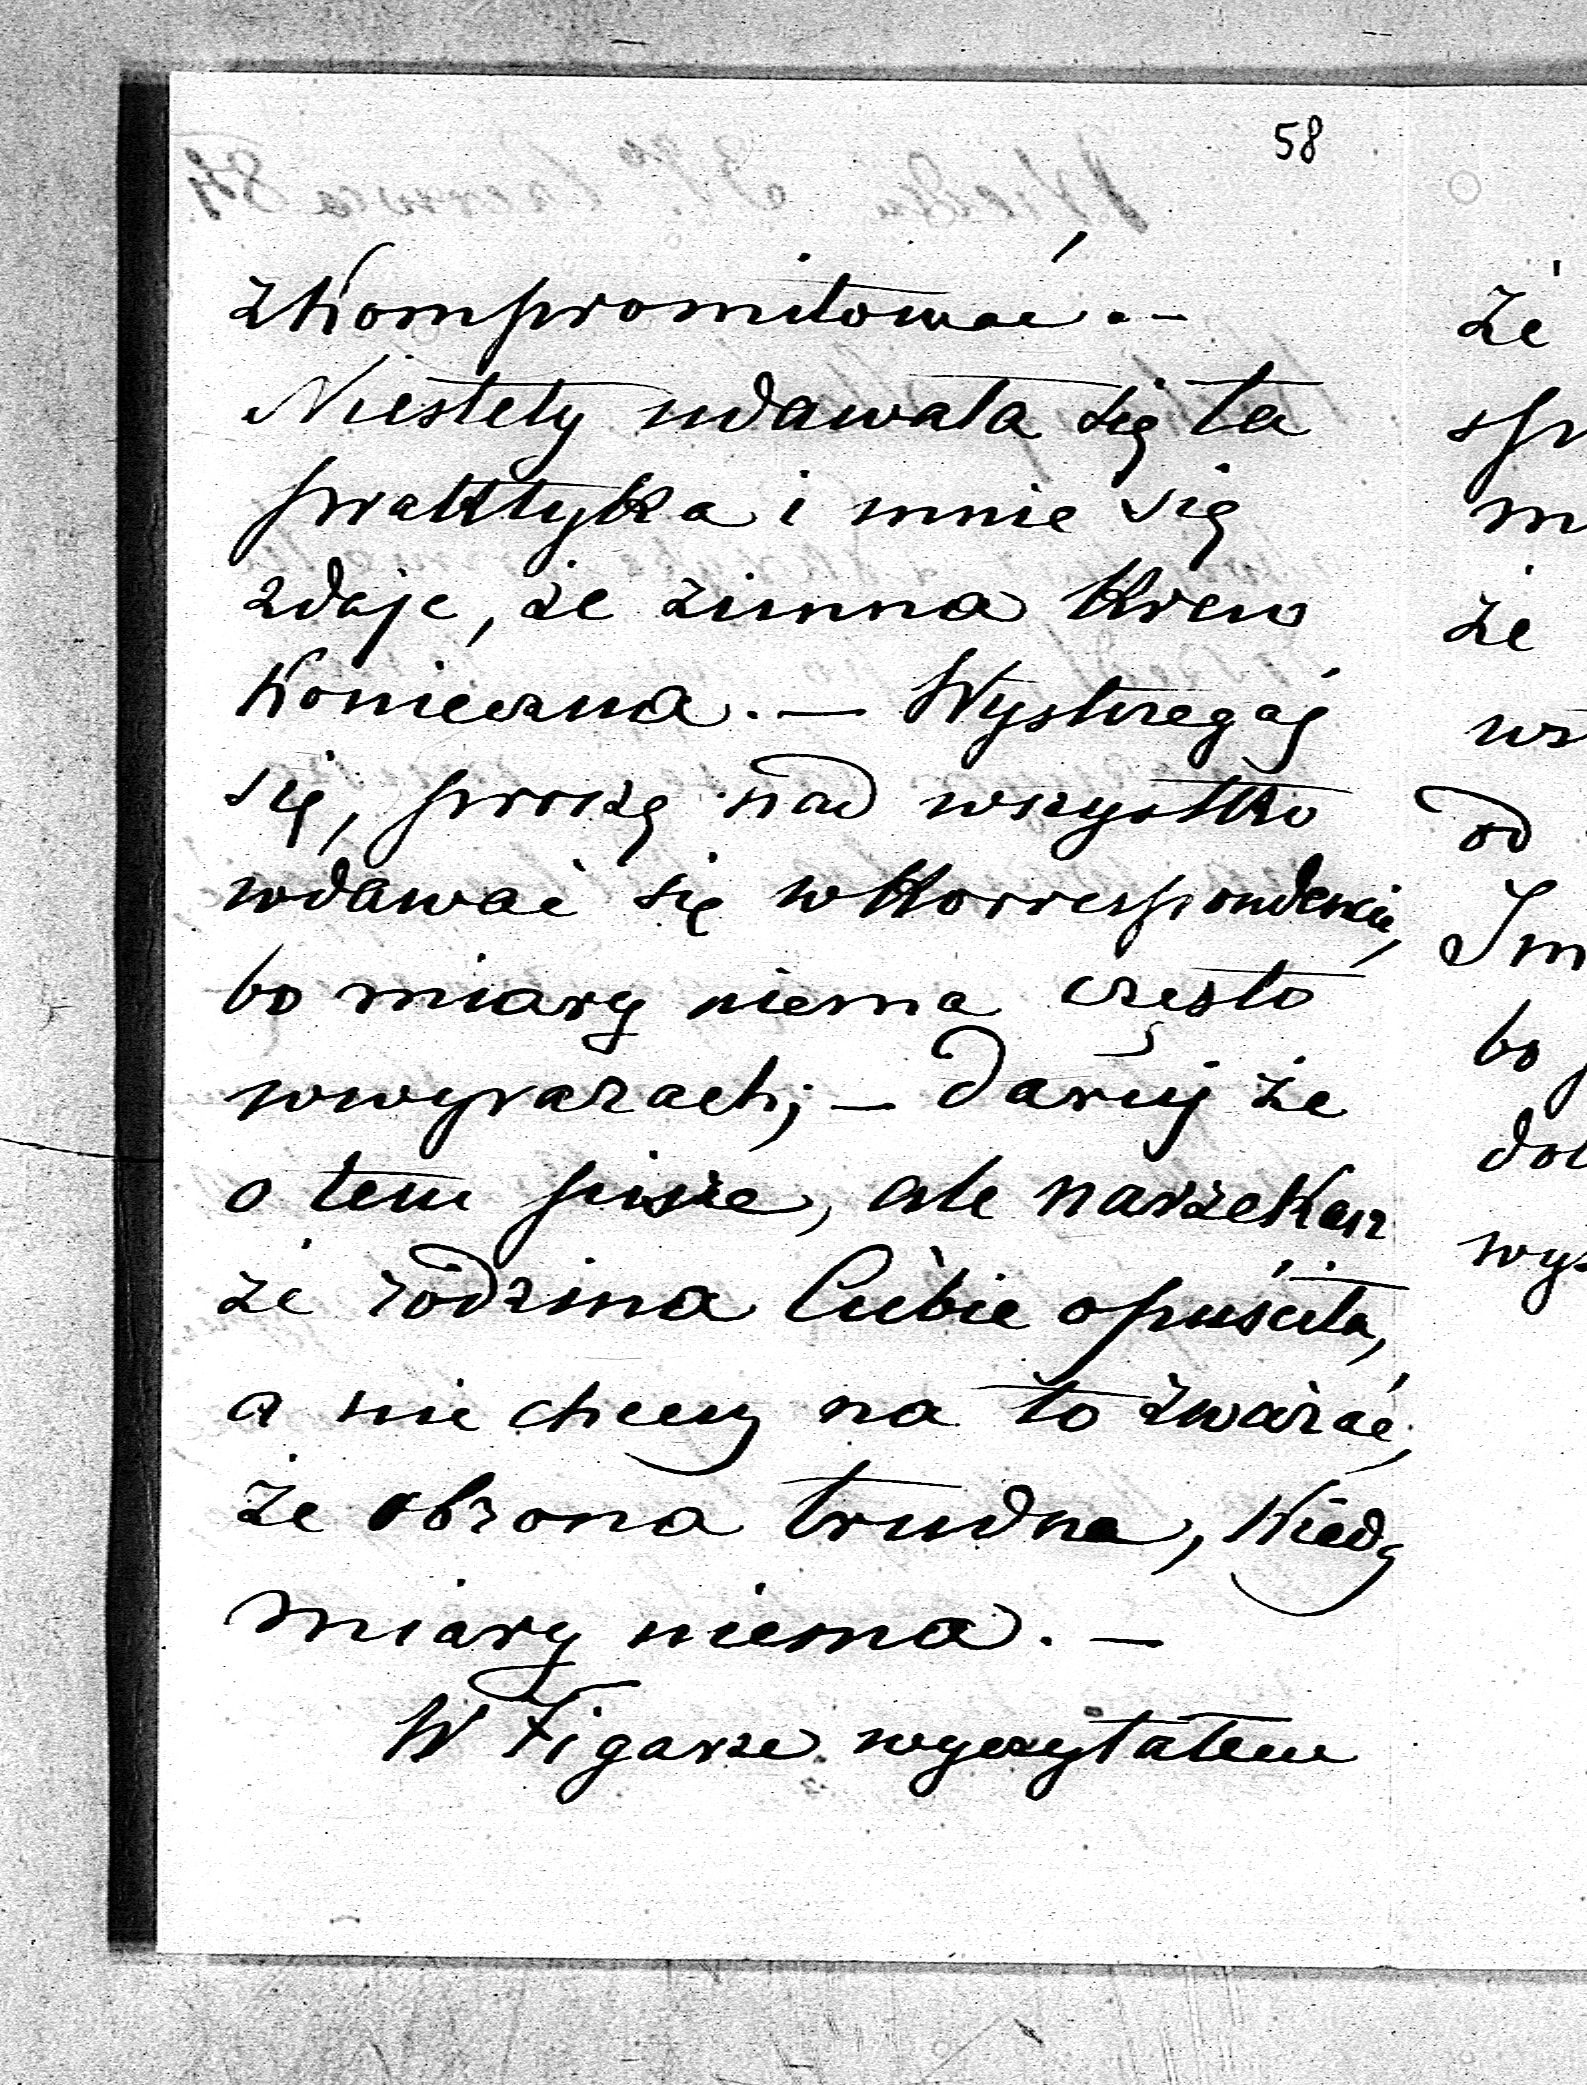 58
zkompromitować. —
Niestety udawała się ta
praktyka i mnie się
zdaje, że zimna krew
konieczna. — Wystrzegaj
się, proszę nad wszystko
wdawać się w korrespondencie,
bo miary niema często
w wyrazach; — Daruj że
o tem piszę, ale narzekasz
że rodzina Ciebie opuściła,
a nie chcesz na to zważać,
że obrona trudna, kiedy
miary niema. —
W Figarze wyczytałem
że
spr
m
że
wz
od
Im
bo
dob
wys